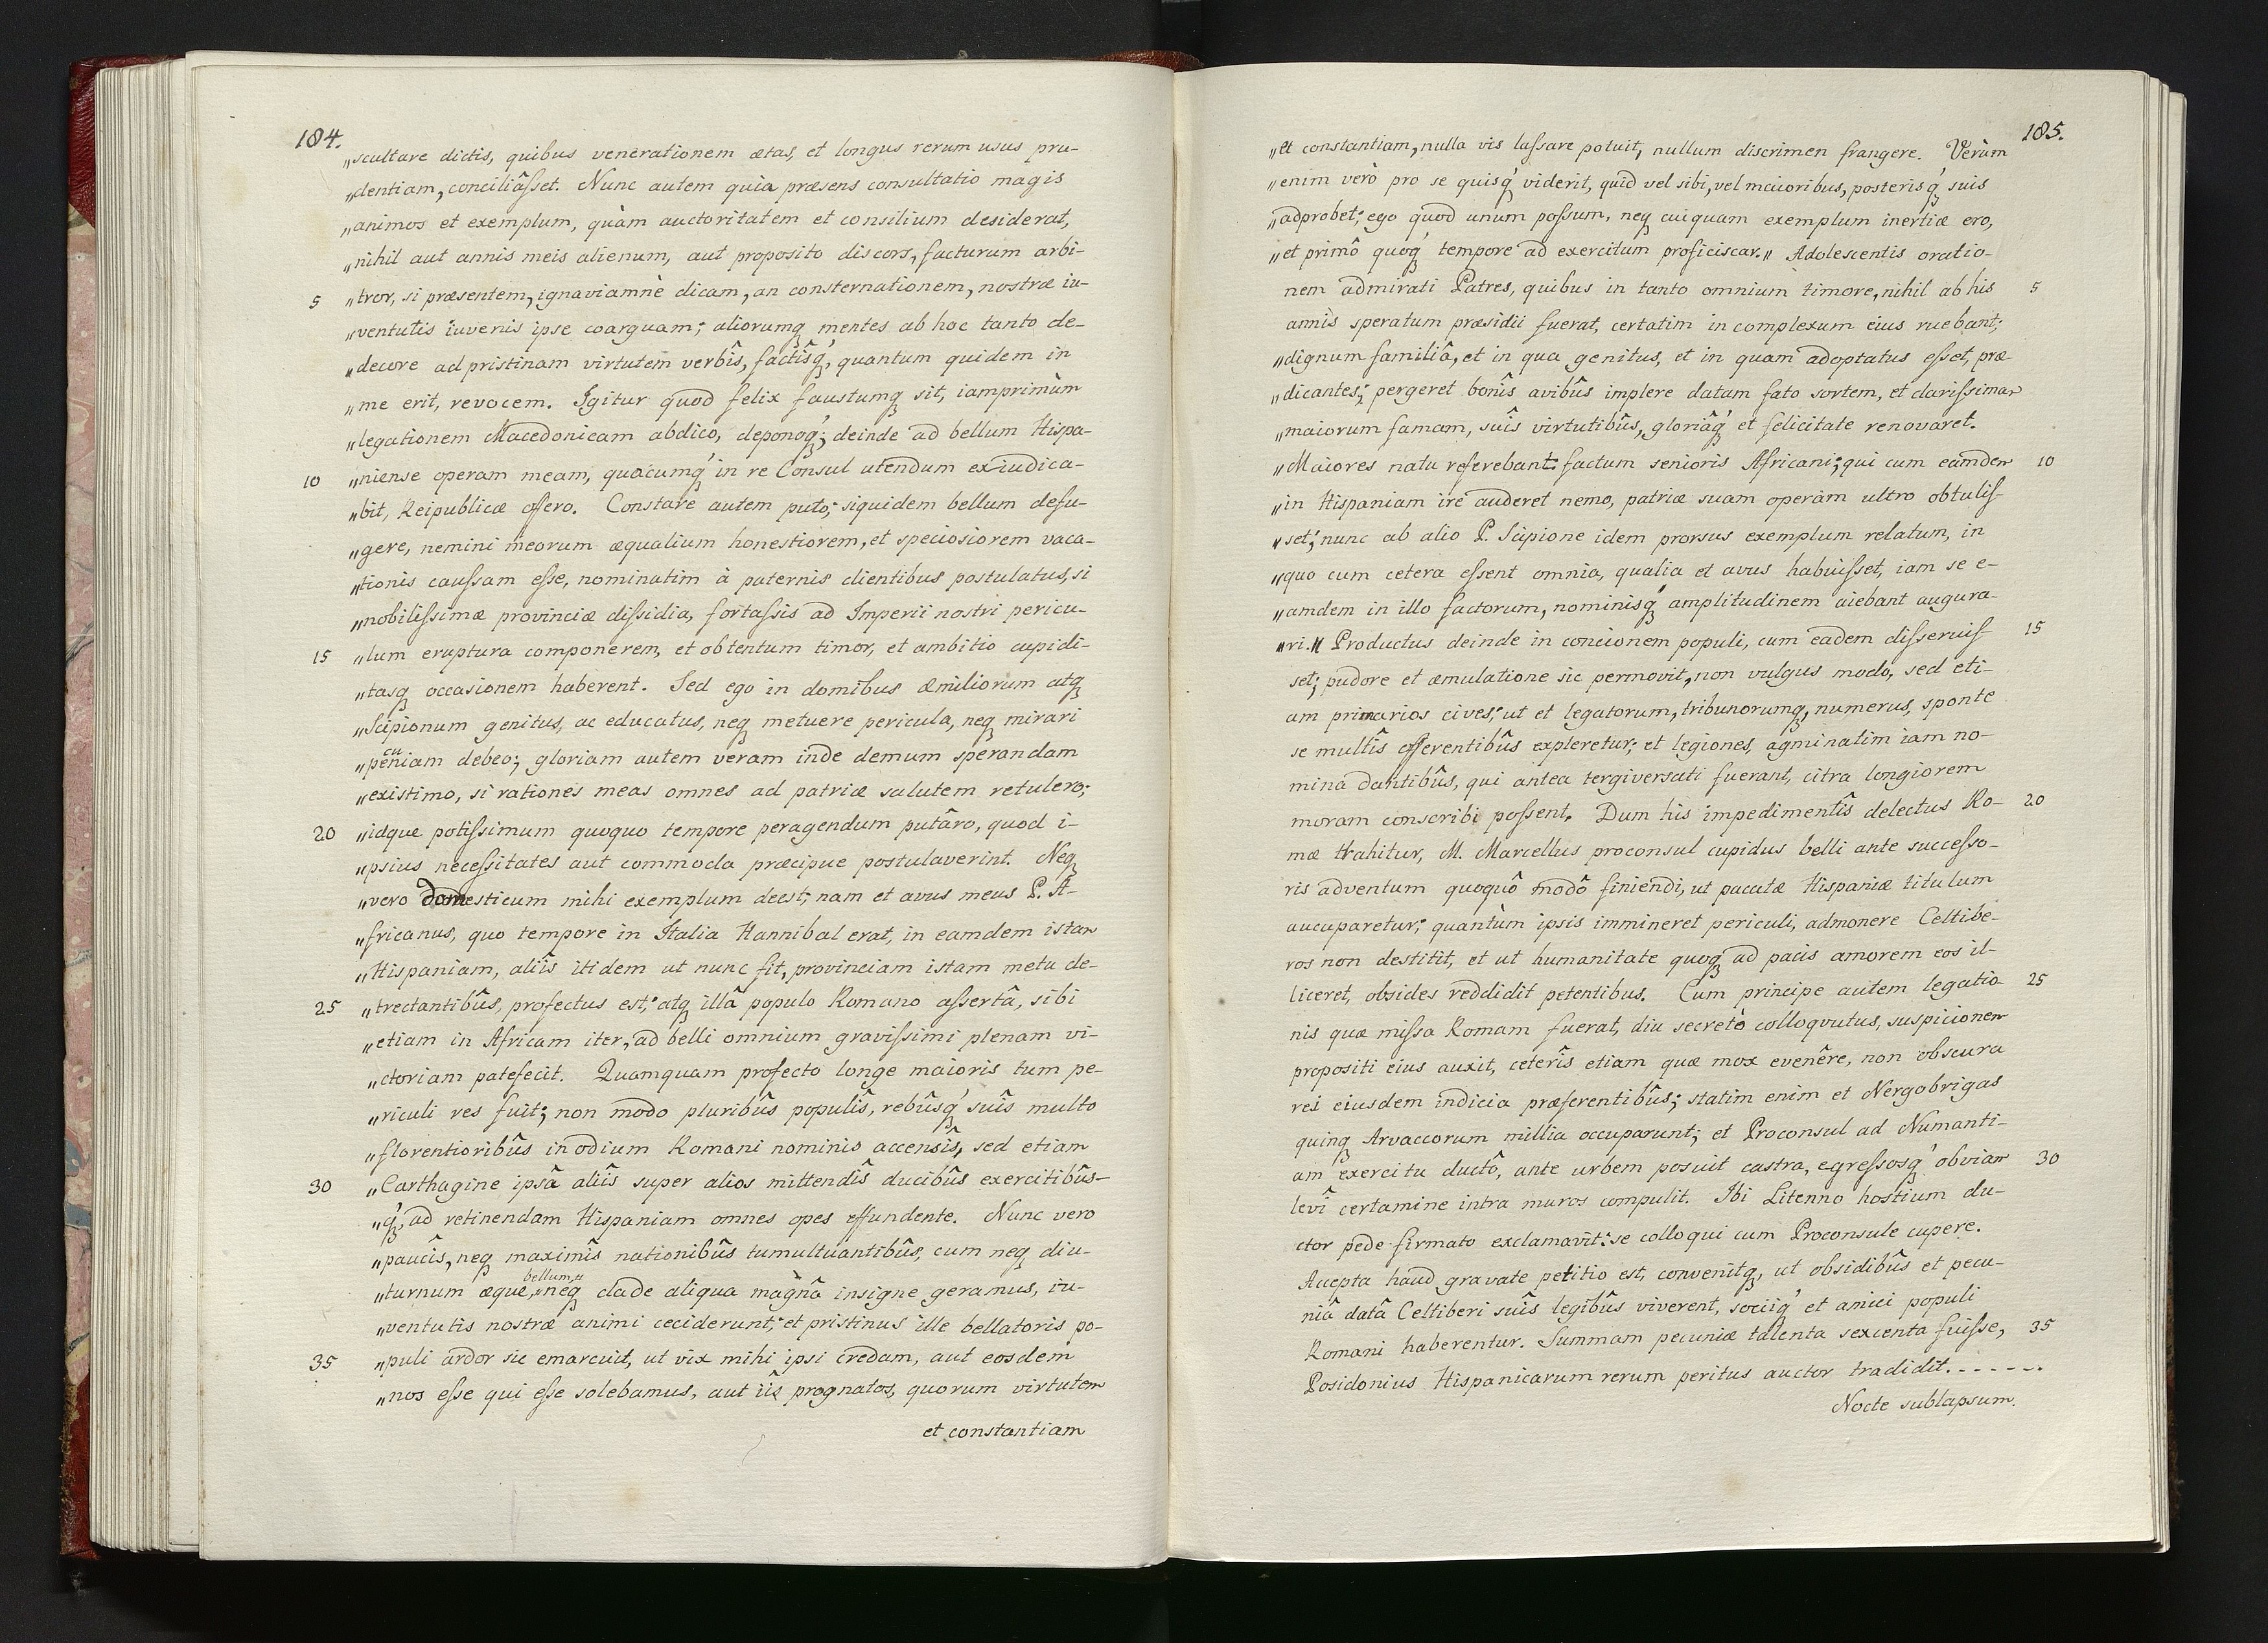 184.
„scultare dictis, quibus venerationem ætas, et longus rerum usus pru-
„dentiam, conciliâsset. Nunc autem quia præsens consultatio magis
„animos et exemplum, quàm auctoritatem et consilium desiderat,
„nihil aut annis meis alienum, aut proposito discors, facturum arbi-
5 „tror, si præsentem, ignaviamnè dicam, an consternationem, nostræ iu-
„ventutis iuvenis ipse coarguam; aliorumq mentes ab hoc tanto de-
„decore ad pristinam virtutem verbîs, factîsq́, quantum quidem in
„me erit, revocem. Igitur quod felix faustumq sit, iamprimùm
„legationem Macedonicam abdico, deponoq́; deinde ad bellum Hispa-
10 „niense operam meam, quacumq́ in re Consul utendum exiudica-
„bit, Reipublicæ offero. Constare autem puto; siquidem bellum defu-
„gere, nemini meorum æqualium honestiorem, et speciosiorem vaca-
„tionis caussam esse, nominatim à paternis clientibus postulatus, si
„nobilissimæ provinciæ dissidia, fortassis ad Imperii nostri pericu-
15 „lum eruptura componerem, et obtentum timor, et ambitio cupidi-
„tasq occasionem haberent. Sed ego in domibus Æmiliorum atq
„Scipionum genitus, ac educatus, neq metuere pericula, neq mirari
cu
„peniam debeo; gloriam autem veram inde demum sperandam
„existimo, si rationes meas omnes ad patriæ salutem retulero;
20 „idque potissimum quoquo tempore peragendum putâro, quod i-
„psius necessitates aut commoda præcipue postulaverint. Neq
„vero domesticum mihi exemplum deest; nam et avus meus P. A-
„fricanus, quo tempore in Italia Hannibal erat, in eamdem istam
„Hispaniam, aliîs itidem ut nunc fit, provinciam istam metu de-
25 „trectantibûs, profectus est; atq illâ populo Romano assertâ, sibi
„etiam in Africam iter, ad belli omnium gravissimi plenam vi-
„ctoriam patefecit. Quamquam profecto longe maioris tum pe-
„riculi res fuit; non modo pluribûs populîs, rebûsq́ suîs multo
„florentioribûs in odium Romani nominis accensîs, sed etiam
30 „Carthagine ipsâ aliîs super alios mittendîs ducibûs exercitibûs-
„q́, ad retinendam Hispaniam omnes opes effundente. Nunc vero
„paucîs, neq maximîs nationibûs tumultuantibûs, cum neq diu-
bellum
„turnum æque, neq clade aliqua magnâ insigne geramus, iu-
„ventutis nostræ animi ceciderunt; et pristinus ille bellatoris po-
35 „puli ardor sic emarcuit, ut vix mihi ipsi credam, aut eosdem
„nos esse qui esse solebamus, aut iîs prognatos, quorum virtutem
et constantiam
185.
„et constantiam, nulla vis lassare potuit, nullum discrimen frangere. Verùm
„enim verò pro se quisq́ viderit, quid vel sibi, vel maioribus, posterisq́ suis
„adprobet; ego quod unum possum, neq cuiquam exemplum inertiæ ero,
„et primô quoq́ tempore ad exercitum proficiscar.„ Adolescentis oratio-
nem admirati Patres, quibus in tanto omnium timore, nihil ab his 5
annis speratum præsidii fuerat, certatim in complexum eius ruebant;
„dignum familiâ, et in qua genitus, et in quam adoptatus esset, præ-
„dicantes; pergeret bonîs avibûs implere datam fato sortem, et clarissimam
„maiorum famam, suîs virtutibûs, gloriâq́ et felicitate renovaret.
„Maiores natu referebant: factum senioris Africani; qui cum eamdem 10
„in Hispaniam ire auderet nemo, patriæ suam operam ultro obtulis-
„set; nunc ab alio P. Scipione idem prorsus exemplum relatum, in
„quo cum cetera essent omnia, qualia et avus habuisset, iam se e-
„amdem in illo factorum, nominisq́ amplitudinem aiebant augura-
„ri.„ Productus deinde in concionem populi, cum eadem disseruis- 15
set; pudore et æmulatione sic permovit, non vulgus modo, sed eti-
am primarios cives; ut et legatorum, tribunorumq, numerus, sponte
se multîs offerentibûs expleretur; et legiones, agminatim iam no-
mina dantibûs, qui antea tergiversati fuerant, citra longiorem
moram conscribi possent. Dum his impedimentîs delectus Ro- 20
mæ trahitur, M. Marcellus proconsul cupidus belli ante successo-
ris adventum quoquô modô finiendi, ut pacatæ Hispaniæ titulum
aucuparetur; quantùm ipsis immineret periculi, admonere Celtibe-
ros non destitit, et ut humanitate quoq ad pacis amorem eos il-
liceret, obsides reddidit petentibus. Cum principe autem legatio- 25
nis quæ missa Romam fuerat, diu secretò colloquutus, suspicionem
propositi eius auxit, ceterîs etiam quæ mox evenêre, non obscura
rei eiusdem indicia præferentibûs; statim enim et Nergobrigas
quinq Arvaccorum millia occuparunt; et Proconsul ad Numanti-
am exercitu ductô, ante urbem posuit castra, egressosq́ obviam 30
levî certamine intra muros compulit. Ibi Litenno hostium du-
ctor pede firmato exclamavit: se colloqui cum Proconsule cupere.
Accepta haud gravate petitio est, convenitq, ut obsidibûs et pecu-
niâ datâ Celtiberi suîs legibûs viverent, sociiq́ et amici populi
Romani haberentur. Summam pecuniæ talenta sexcenta fuisse, 35
Posidonius Hispanicarum rerum peritus auctor tradidit.------
Nocte sublapsum.